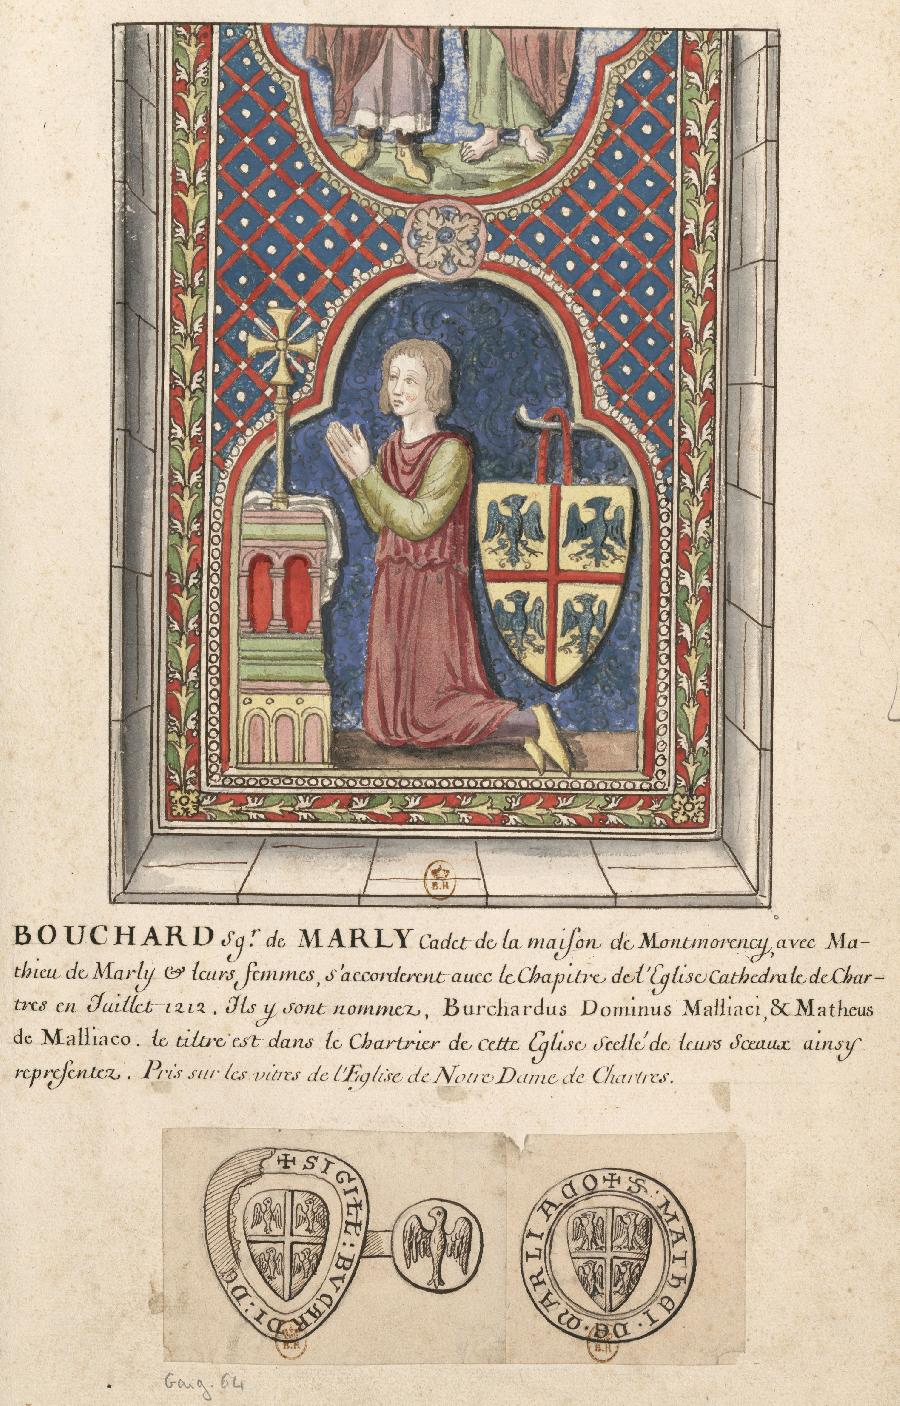 B.R
BOUCHARD Sgr. de MARLY Cadet de la maiſon de Montmorency, avec Ma-
thieu de Marly & leurs femmes, s'accorderent avec le Chapitre de l'Egliſe Cathedrale de Char-
tres en Juillet 1212. Ils y sont nommez, Burchardus Dominus Malliaci, & Matheus
de Malliaco. le tiltre est dans le Chartrier de cette Egliſe scellé de leurs Sceaux ainsy
repreſentez. Pris sur les vitres de l'Egliſe de Notre Dame de Chartres.
✠ SIGILL: BVCARDI: DE
✠ S. MATHEI. DE. MARLIACO
B.R
B.R
Gaig. 64